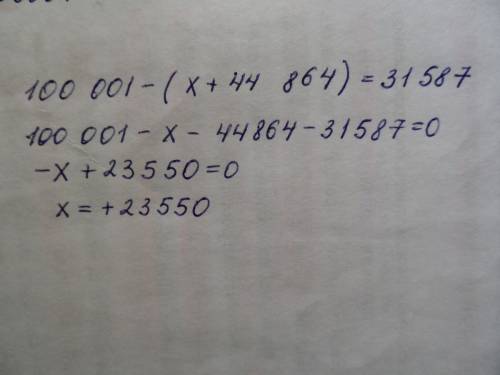 100 001 - ( x + 44 864 ) = 31 587
100 001 - x - 44864 - 31587 = 0
- x + 23550 = 0
x = + 23550